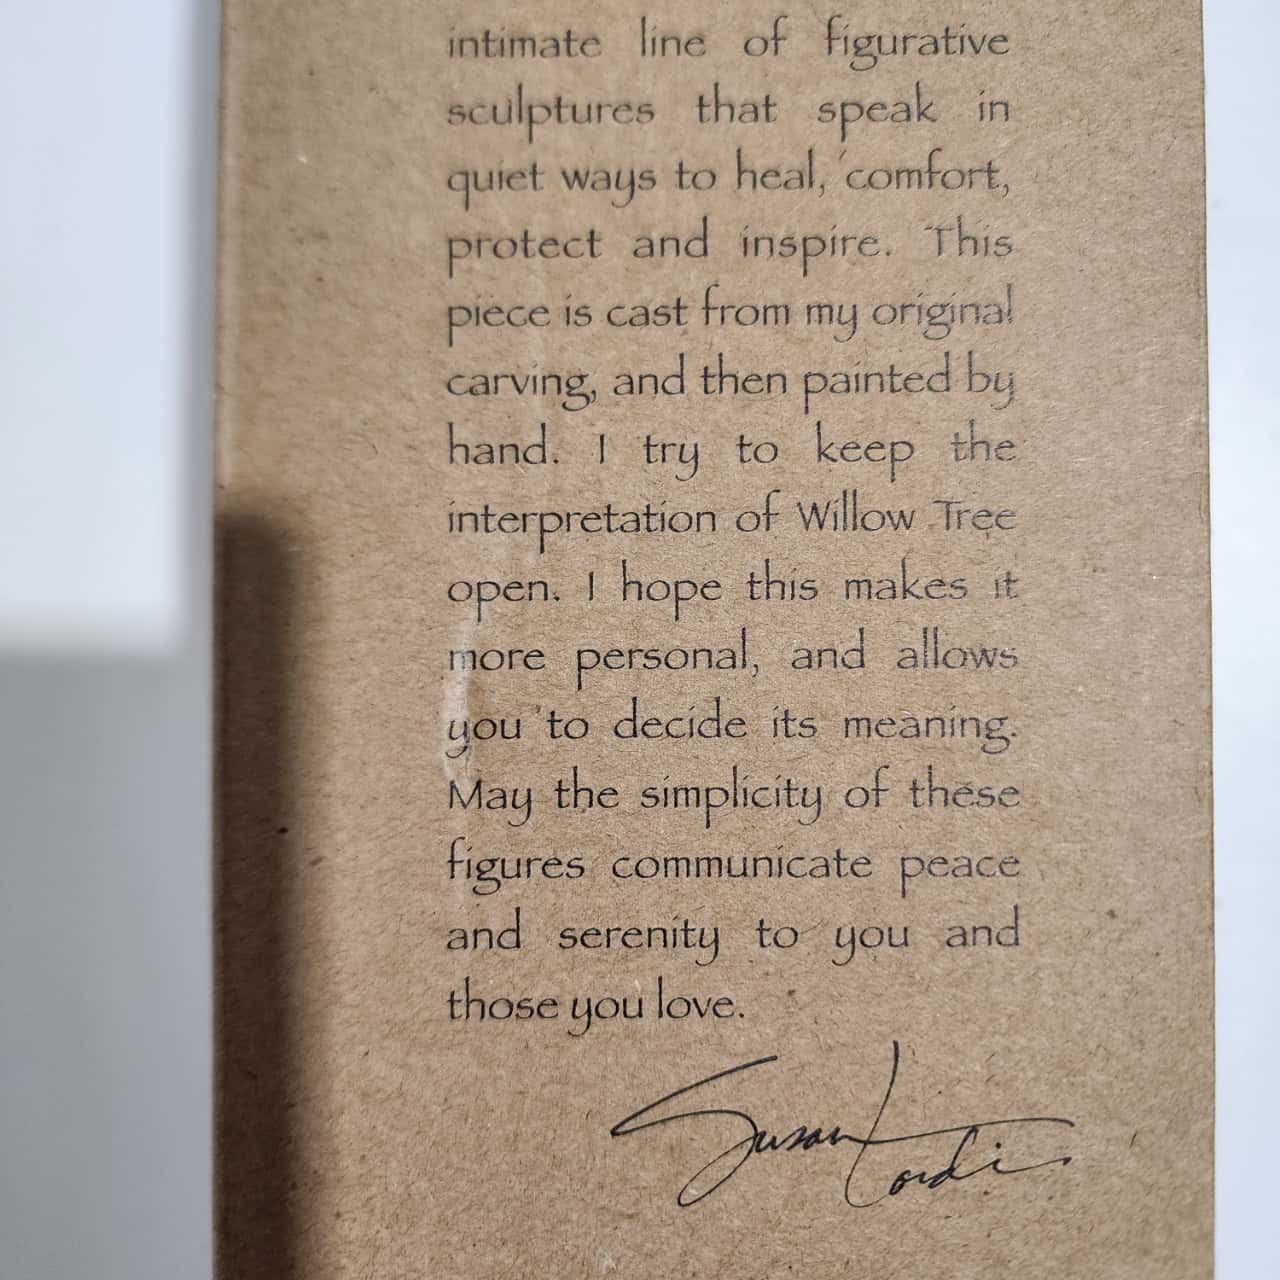 intimate line of figurative
sculptures that speak in
quiet ways to heal, comfort,
protect and inspire. This
piece is cast from my original
carving, and then painted by
hand. I try to keep the
interpretation of Willow Tree
open. I hope this makes it
more personal, and allows
you to decide its meaning.
May the simplicity of these
figures communicate peace
and serenity to you and
those you love.
Susan Lordi